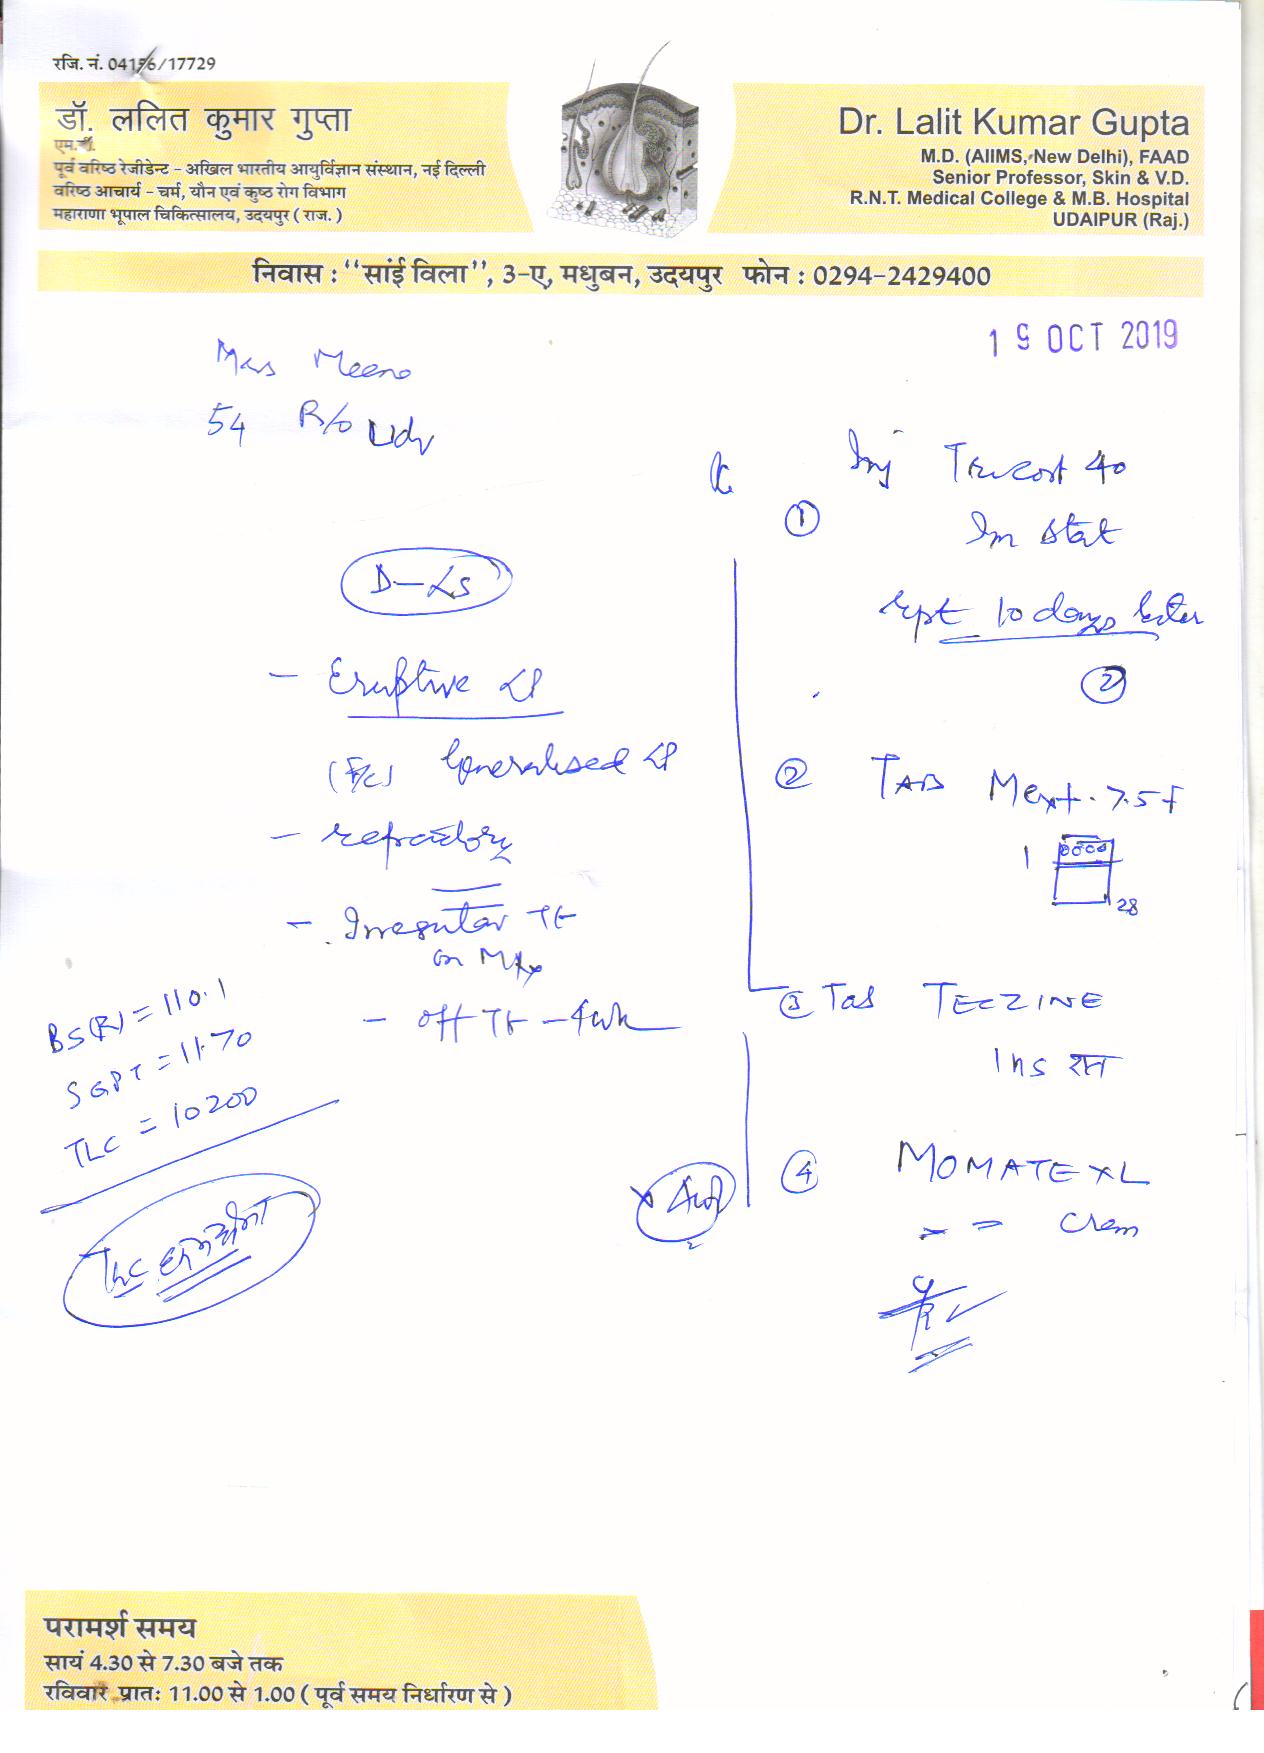 रजि. नं. 04156/17729
डॉ. ललित कुमार गुप्ता
एम.डी.
पूर्व वरिष्ठ रेजीडेन्ट - अखिल भारतीय आयुर्विज्ञान संस्थान, नई दिल्ली
वरिष्ठ आचार्य - चर्म, यौन एवं कुष्ठ रोग विभाग
महाराणा भूपाल चिकित्सालय, उदयपुर ( राज. )
Dr. Lalit Kumar Gupta
M.D. (AIIMS, New Delhi), FAAD
Senior Professor, Skin & V.D.
R.N.T. Medical College & M.B. Hospital
UDAIPUR (Raj.)
निवास : "सांई विला", 3-ए, मधुबन, उदयपुर फोन : 0294-2429400
19 OCT 2019
Mrs Meena
54 R/o Udr
D-LS
- Eruptive LP
Generalised LP
- refractory
- Irregular Tt
on Mtx
- off Tt - 4wk
BS(R) = 110.1
SGPT = 11.70
TLC = 10200
TLC
Inj Tricort 40
① Im stat
rept 10 days later
②
② TAB Mext. 7.5 F
1
28
③ Tab TECZINE
1 hs रात
④ MOMATE XL
Crem
परामर्श समय
सायं 4.30 से 7.30 बजे तक
रविवार प्रातः 11.00 से 1.00 ( पूर्व समय निर्धारण से )